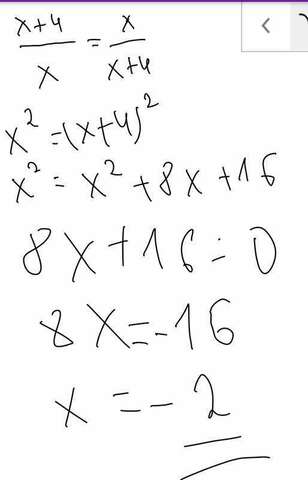 (x+4)/x = x/(x+4)
x² = (x+4)²
x² = x² + 8x + 16
8x + 16 = 0
8x = -16
x = -2